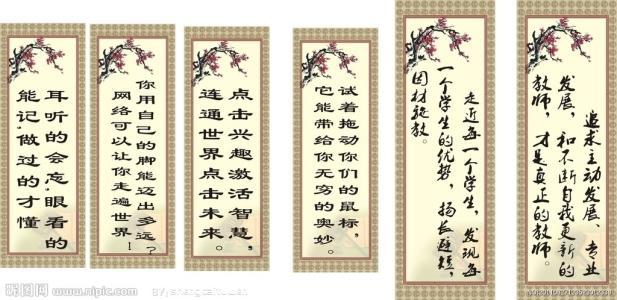 耳听的会忘,眼看的
能记,做过的才懂
你用自己的脚能迈出多远?
网络可以让你走遍世界!
点击兴趣激活智慧,
连通世界点击未来。
试着拖动你们的鼠标,
它能带给你无穷的奥妙。
走近每一个学生,发现每
一个学生的优势,扬长避短,
因材施教。
追求主动发展、专业
发展,和不断自我更新的
教师,才是真正的教师。
昵图网
www.nipic.com